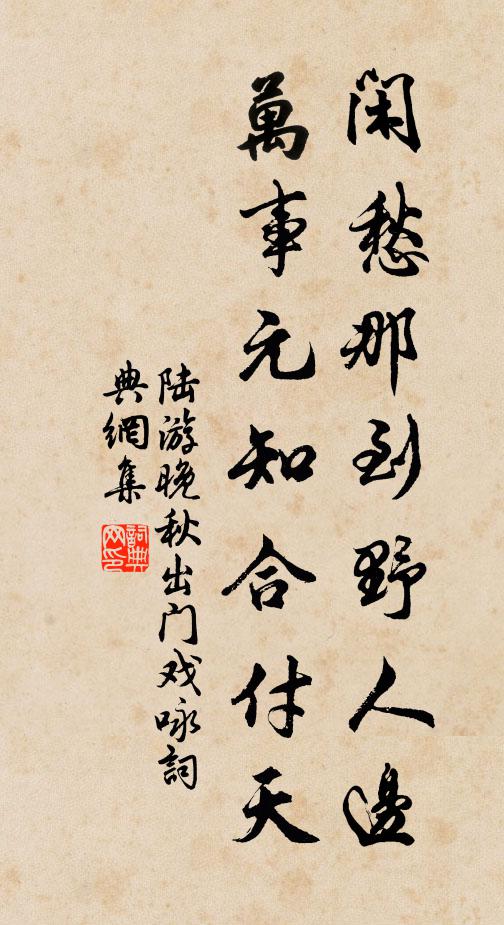 閑愁那到野人邊
萬事元知合付天
陆游晚秋出门戏咏詞
典網集
詞典
网印